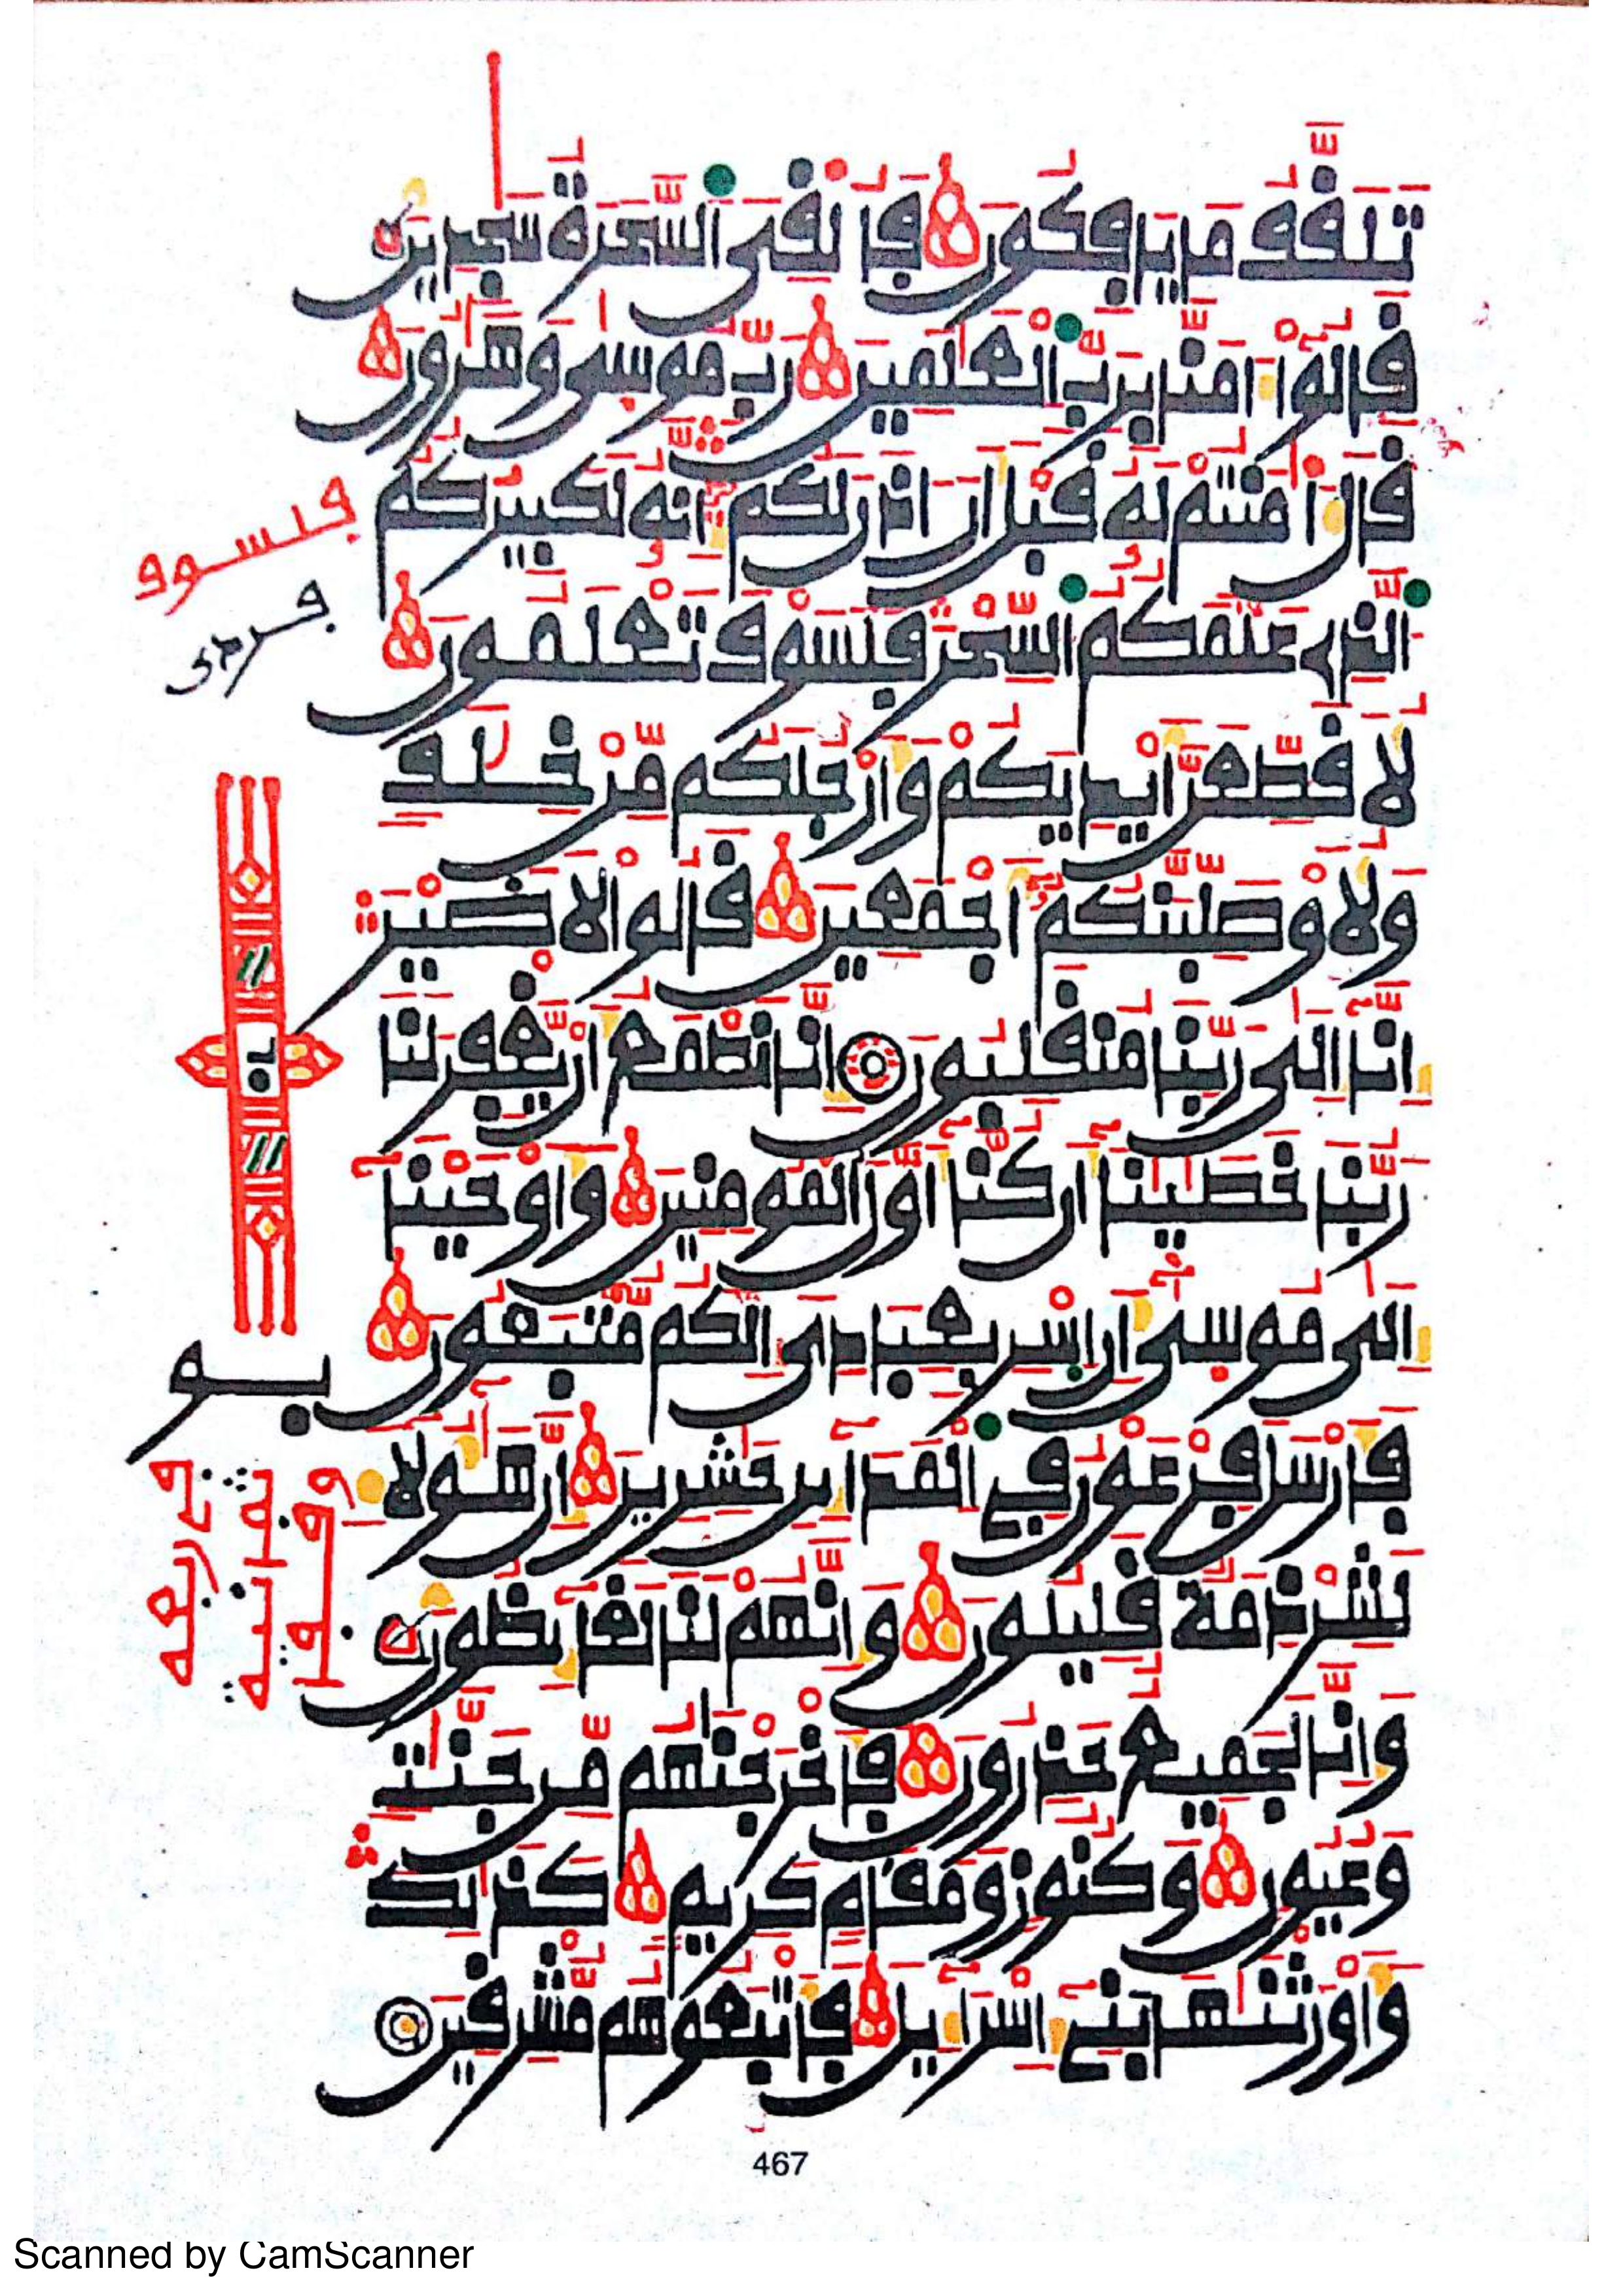 تَلَقَّفُ مَا يَافِكُونَ فَأُلْقِيَ السَّحَرَةُ سَٰجِدِينَ
قَالُوا ءَامَنَّا بِرَبِّ الْعَٰلَمِينَ رَبِّ مُوسَىٰ وَهَٰرُونَ
قَالَ ءَا۬مَنتُمْ لَهُ قَبْلَ أَنْ ءَاذَنَ لَكُمْ إِنَّهُ لَكَبِيرُكُمُ
الَّذِي عَلَّمَكُمُ السِّحْرَ فَلَسَوْفَ تَعْلَمُونَ
لَأُقَطِّعَنَّ أَيْدِيَكُمْ وَأَرْجُلَكُم مِّنْ خِلَٰفٍ
وَلَأُوصَلِّبَنَّكُمُ أَجْمَعِينَ قَالُوا لَا ضَيْرَ
إِنَّا إِلَىٰ رَبِّنَا مُنقَلِبُونَ إِنَّا نَطْمَعُ أَنْ يَّغْفِرَ لَنَا
رَبُّنَا خَطَٰيَٰنَا أَن كُنَّا أَوَّلَ الْمُومِنِينَ وَأَوْحَيْنَا
إِلَىٰ مُوسَىٰ أَنِ اسْرِ بِعِبَادِيَ إِنَّكُم مُّتَّبَعُونَ
فَأَرْسَلَ فِرْعَوْنُ فِي الْمَدَائِنِ حَٰشِرِينَ إِنَّ هَٰؤُلَاءِ
لَشِرْذِمَةٌ قَلِيلُونَ وَإِنَّهُمْ لَنَا لَغَائِظُونَ
وَإِنَّا لَجَمِيعٌ حَذِرُونَ فَأَخْرَجْنَٰهُم مِّن جَنَّٰتٍ
وَعُيُونٍ وَكُنُوزٍ وَمَقَامٍ كَرِيمٍ كَذَٰلِكَ
وَأَوْرَثْنَٰهَا بَنِي إِسْرَائِيلَ فَأَتْبَعُوهُم مُّشْرِقِينَ
فلسوف
467
Scanned by CamScanner